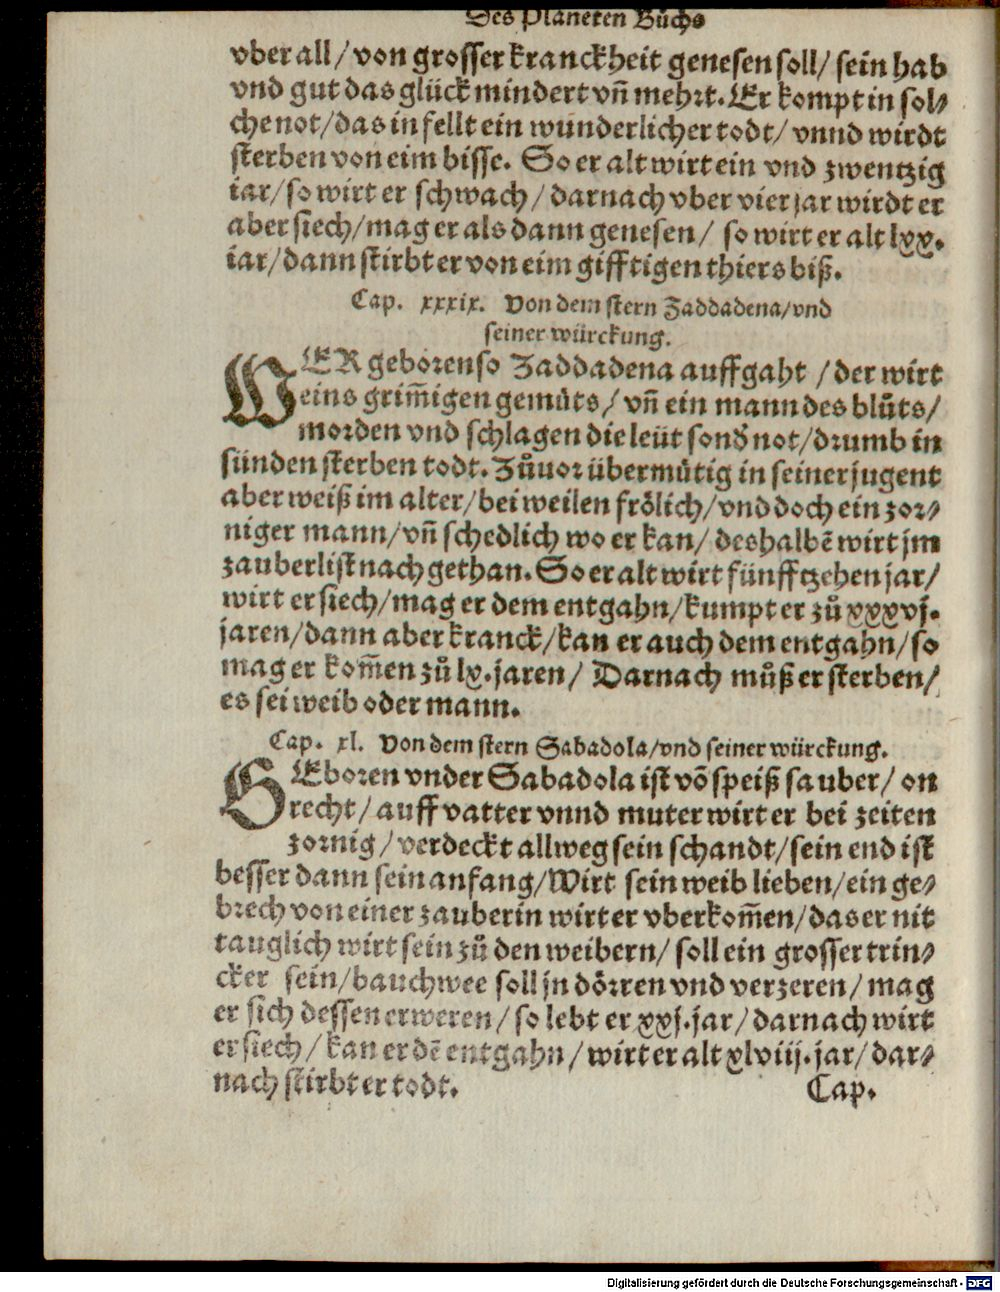 Des Planeten Bůchs
vber all/ von grosser kranckheit genesen soll/ sein hab
vnd gut das glück mindert vñ mehrt. Er kompt in sol⸗
che not/ das in fellt ein wunderlicher todt/ vnnd wirdt
sterben von eim bisse. So er alt wirt ein vnd zwentzig
iar/ so wirt er schwach/ darnach vber vier jar wirdt er
aber siech/ mag er als dann genesen/ so wirt er alt lxx.
iar/ dann stirbt er von eim gifftigen thiers biß.
Cap. xxxix. Von dem stern Zaddadena/ vnd
seiner würckung.
WER geboren so Zaddadena auffgaht/ der wirt
eins grim̃igen gemůts/ vñ ein mann des blůts/
morden vnd schlagen die leüt sonď not/ drumb in
sünden sterben todt. Zůuor übermůtig in seiner jugent
aber weiß im alter/ bei weilen frölich/ vnd doch ein zor⸗
niger mann/ vñ schedlich wo er kan/ deshalbẽ wirt jm
zauberlist nach gethan. So er alt wirt fünfftzehen jar/
wirt er siech/ mag er dem entgahn/ kumpt er zů xxxvj.
jaren/ dann aber kranck/ kan er auch dem entgahn/ so
mag er kom̃en zů lx. jaren/ Darnach můß er sterben/
es sei weib oder mann.
Cap. xl. Von dem stern Sabadola/ vnd seiner würckung.
GEboren vnder Sabadola ist võ speiß sauber/ on
recht/ auff vatter vnnd muter wirt er bei zeiten
zornig/ verdeckt allweg sein schandt/ sein end ist
besser dann sein anfang/ Wirt sein weib lieben/ ein ge⸗
brech von einer zauberin wirt er vberkom̃en/ das er nit
tauglich wirt sein zů den weibern/ soll ein grosser trin⸗
cker sein/ bauchwee soll jn dörren vnd verzeren/ mag
er sich dessen erweren/ so lebt er xxj. jar/ darnach wirt
er siech/ kan er dẽ entgahn/ wirt er alt xlviij. jar/ dar⸗
nach stirbt er todt.
Cap.
Digitalisierung gefördert durch die Deutsche Forschungsgemeinschaft - DFG